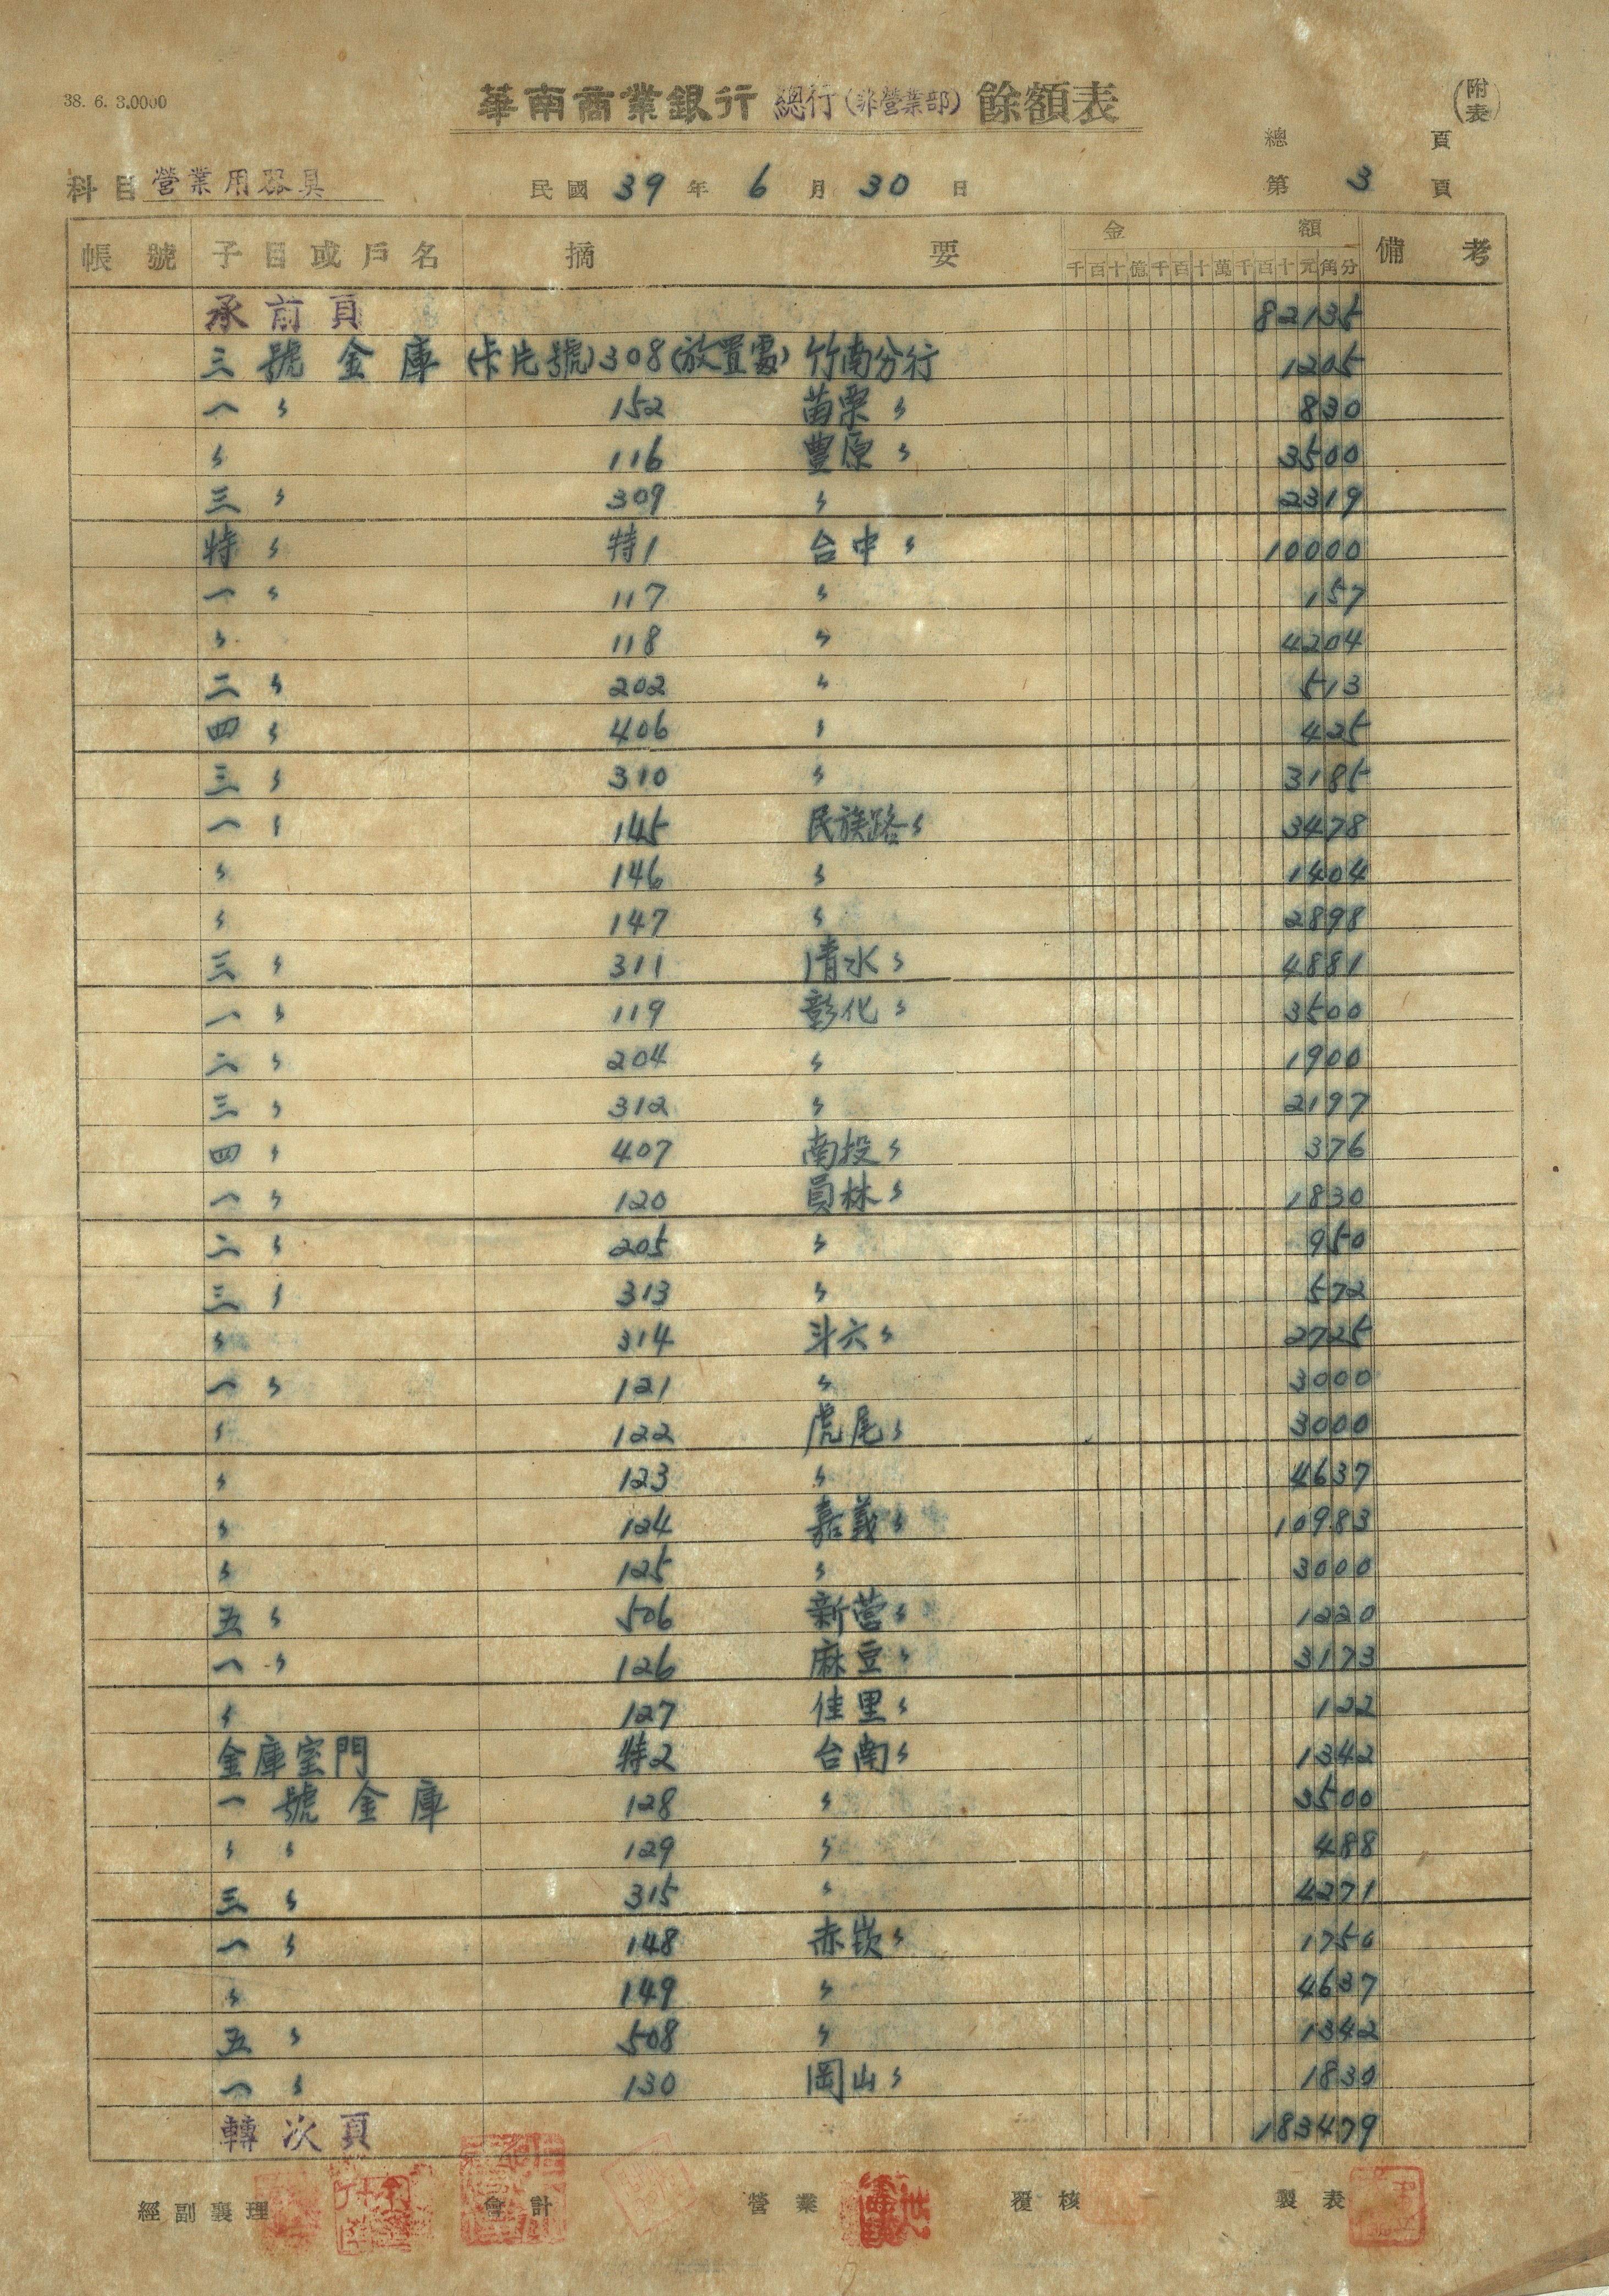 38. 6. 3.0000
華南商業銀行 總行(非營業部) 餘額表 (附表)
總 頁
科目 營業用器具 民國 39 年 6 月 30 日 第 3 頁
帳號 子目或戶名 摘要 金額 備考
千百十億千百十萬千百十元角分
承前頁 82135
三號金庫 (卡片號)308(放置處) 竹南分行 1205
一 〃 152 苗栗 〃 830
〃 116 豐原 〃 3500
三 〃 309 〃 2319
特 〃 特1 台中 〃 10000
一 〃 117 〃 157
〃 118 〃 4204
二 〃 202 〃 513
四 〃 406 〃 425
三 〃 310 〃 3185
一 〃 145 民族路 〃 3478
〃 146 〃 1404
〃 147 〃 2898
三 〃 311 清水 〃 4881
一 〃 119 彰化 〃 3500
二 〃 204 〃 1900
三 〃 312 〃 2197
四 〃 407 南投 〃 376
一 〃 120 員林 〃 1830
二 〃 205 〃 950
三 〃 313 〃 572
〃 314 斗六 〃 2725
一 〃 121 〃 3000
〃 122 虎尾 〃 3000
〃 123 〃 4637
〃 124 嘉義 〃 10983
〃 125 〃 3000
五 〃 506 新營 〃 1220
一 〃 126 麻豆 〃 3173
〃 127 佳里 〃 122
金庫室門 特2 台南 〃 1342
一號金庫 128 〃 3500
〃 〃 129 〃 488
三 〃 315 〃 4271
一 〃 148 赤崁 〃 1750
〃 149 〃 4637
五 〃 508 〃 1342
一 〃 130 岡山 〃 1830
轉次頁 183479
經副襄理 會計 營業 覆核 製表